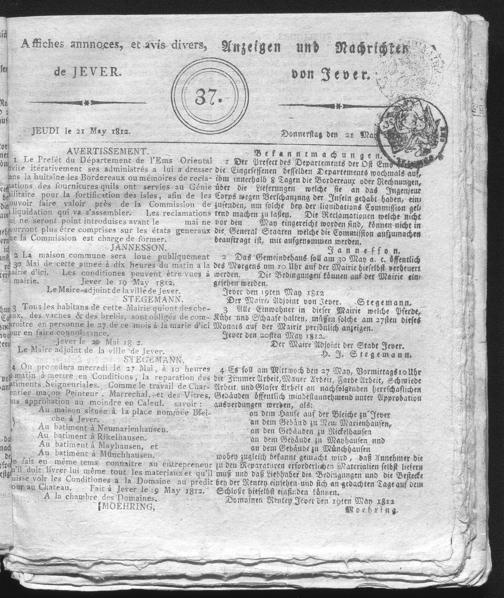 Affiches annnoces, et avis divers,
de JEVER.
37.
Anzeigen und Nachrichten
von Jever.
JEUDI le 21 May 1812.
Donnerstag den 21 May
AVERTISSEMENT.
1 Le Prefét du Département de l'Ems Oriental
itérativement ses administrés a lui a dresser
dans la huitaine les Bordereaux ou mémoires de recla-
ations des fournitures quils ont servies au Génie
ilitaire pour la fortification des Isles, afin de les
ouvoir faire valoir près de la Commission de
liquidation qui va s'assembler. Les reclamations
ne seront point introduises avant le mai ne
ourront plus être comprises sur les états generaux
la Commission est charge de former.
JANNESSON.
2 La maison commune sera loue publiquement
30 Mai de cette année à dix heures du matin à la
airie d'ici. Les conditions peuvent être vues à
mairie. Jever le 19 May 1812.
Le Maire-adjoint de la ville de Jever.
STEGEMANN.
3 Tous les habitans de cette Mairie quiont des che-
aux, des vaches & des brebis, sont obligés de com-
roitre en personne le 27 de ce mois à la marie d'ici
our en faire connoissance.
Jever le 20 Mai 18 2.
Le Maire adjoint de la ville de Jever.
STEGEMANN.
4 On procédera mecredi le 27 Mai, à 10 heures
matin à mettre en Conditions, la reparation des
atiments Seigneuriales. Comme le travail de Char-
entier maçon Peinteur, Marrechal, et des Vitres,
ns approbation au moindre en Calcul, savoir:
Au maison située à la place nommée Blei-
che à Jever.
Au batiment à Neumarienhausen.
Au batiment à Rikelhausen.
Au batiment à Mayhausen, et
Au batiment à Münchhausen.
fait en même tems connaitre au entrepreneur
il doit livrer lui même tout les materiaux et qu'il
uisse voir les Conditions a la Domaine au predit
our au Chateau. Fait à Jever le 19 May 1812.
A la chambre des Domaines,
MOEHRING,
Bekanntmachungen.
1 Der Prefect des Departements der Ost Ems
die Eingesessenen desselben Departements wochmals auf,
ihm innerhalb 8 Tagen die Bordereaux oder Rechnungen,
über die Lieferungen welche sie an das Ingenieur
Corps wegen Verschanzung der Inseln gehabt haben, ein
zusenden, um solche bey der liquidations Commission gel-
tend machen zu lassen. Die Reclamationen welche nicht
vor den May eingereicht worden sind, können nicht in
die General Staaten welche die Commission aufzumachen
beauftragt ist, mit aufgenommen werden.
Jannesson.
2 Das Gemeindehaus soll am 30 May a. c. öffentlich
des Morgens um 10 Uhr auf der Mairie hieselbst verheuert
werden. Die Bedingungen können auf der Mairie ein-
gesehen werden.
Jever den 19ten May 1812
Der Maire Adjoint von Jever. Stegemann.
3 Alle Einwohner in dieser Mairie welche Pferde,
Kühe und Schaafe halten, müssen solche am 27sten dieses
Monats auf der Mairie persönlich anzeigen.
Jever den 20sten May 1812.
Der Maire Adjoint der Stadt Jever.
H. J. Stegemann.
4 Es soll am Mittwoch den 27 May, Vormittags 10 Uhr
die Zimmer Arbeit, Maurer Arbeit, Farbe Arbeit, Schmiede
Arbeit und Glaser Arbeit an nachfolgenden herrschaftlichen
Gebäuden öffentlich mindestannehmend unter Approbation
ausverdungen werden, als:
an dem Hause auf der Bleiche zu Jever
an dem Gebäud zu Neu Marienhausen,
an den Gebäuden zu Rickelhausen
an dem Gebäude zu Mayhausen und
an dem Gebäude zu Münchhausen
wobey zugleich bekannt gemacht wird, daß Annehmer die
zu den Reparaturen erforderlichen Materialien selbst liefern
muß und daß Liebhaber die Bedingungen und die Bestecke
bey der Rentey einsehen und sich an gedachten Tage auf dem
Schlosse hieselbst einfinden können.
Domainen Rentey Jever den 19ten May 1812
Moehring.